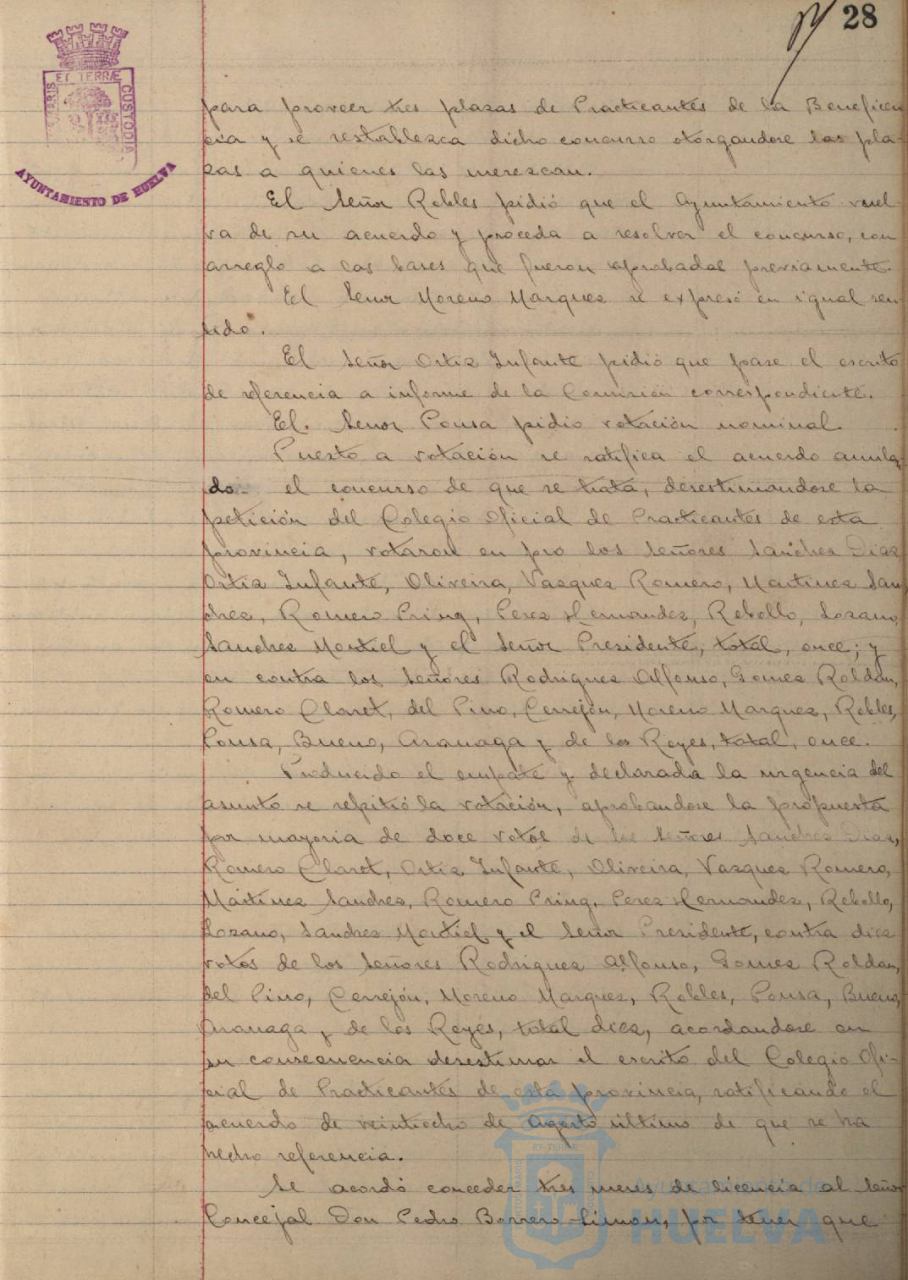 28
ET TERRÆ
CUSTODIA
AYUNTAMIENTO DE HUELVA
para proveer tres plazas de Practicantes de la Beneficen
cia y se restablezca dicho concurso otorgandose las pla-
zas a quienes las merezcan.
El Señor Robles pidió que el Ayuntamiento vuel-
va de su acuerdo y proceda a resolver el concurso, con
arreglo a las bases que fueron aprobadas previamente.
El Señor Moreno Marquez se expresó en igual sen-
tido.
El Señor Ortiz Infante pidió que pase el escrito
de referencia a informe de la Comisión correspondiente.
El Señor Ponsa pidió votación nominal.
Puesto a votación se ratifica el acuerdo anula
do el concurso de que se trata, desestimandose la
petición del Colegio Oficial de Practicantes de esta
provincia, votaron en pro los Señores Sanchez Diaz
Ortiz Infante, Oliveira, Vazquez Romero, Martinez San
chez, Romero Pring, Perez Hernandez, Rebollo, Lozano,
Sanchez Montiel y el Señor Presidente, total, once; y
en contra los Señores Rodriguez Alfonso, Gomez Roldan,
Romero Claret, del Pino, Cerrejón, Moreno Marquez, Robles,
Ponsa, Bueno, Aranaga y de los Reyes, total, once.
Producido el empate y declarada la urgencia del
asunto se repitió la votación, aprobandose la propuesta
por mayoria de doce votos de los Señores Sanchez Diaz,
Romero Claret, Ortiz Infante, Oliveira, Vazquez Romero,
Martinez Sanchez, Romero Pring, Perez Hernandez, Rebollo,
Lozano, Sanchez Montiel y el Señor Presidente, contra diez
votos de los Señores Rodriguez Alfonso, Gomez Roldan,
del Pino, Cerrejón, Moreno Marquez, Robles, Ponsa, Bueno,
Aranaga y de los Reyes, total diez, acordandose en
su consecuencia desestimar el escrito del Colegio Ofi-
cial de Practicantes de esta provincia, ratificando el
acuerdo de veintiocho de Agosto último de que se ha
hecho referencia.
Se acordó conceder tres meses de licencia al Señor
Concejal Don Pedro Borrero Limon, por tener que
Ayuntamiento de
HUELVA